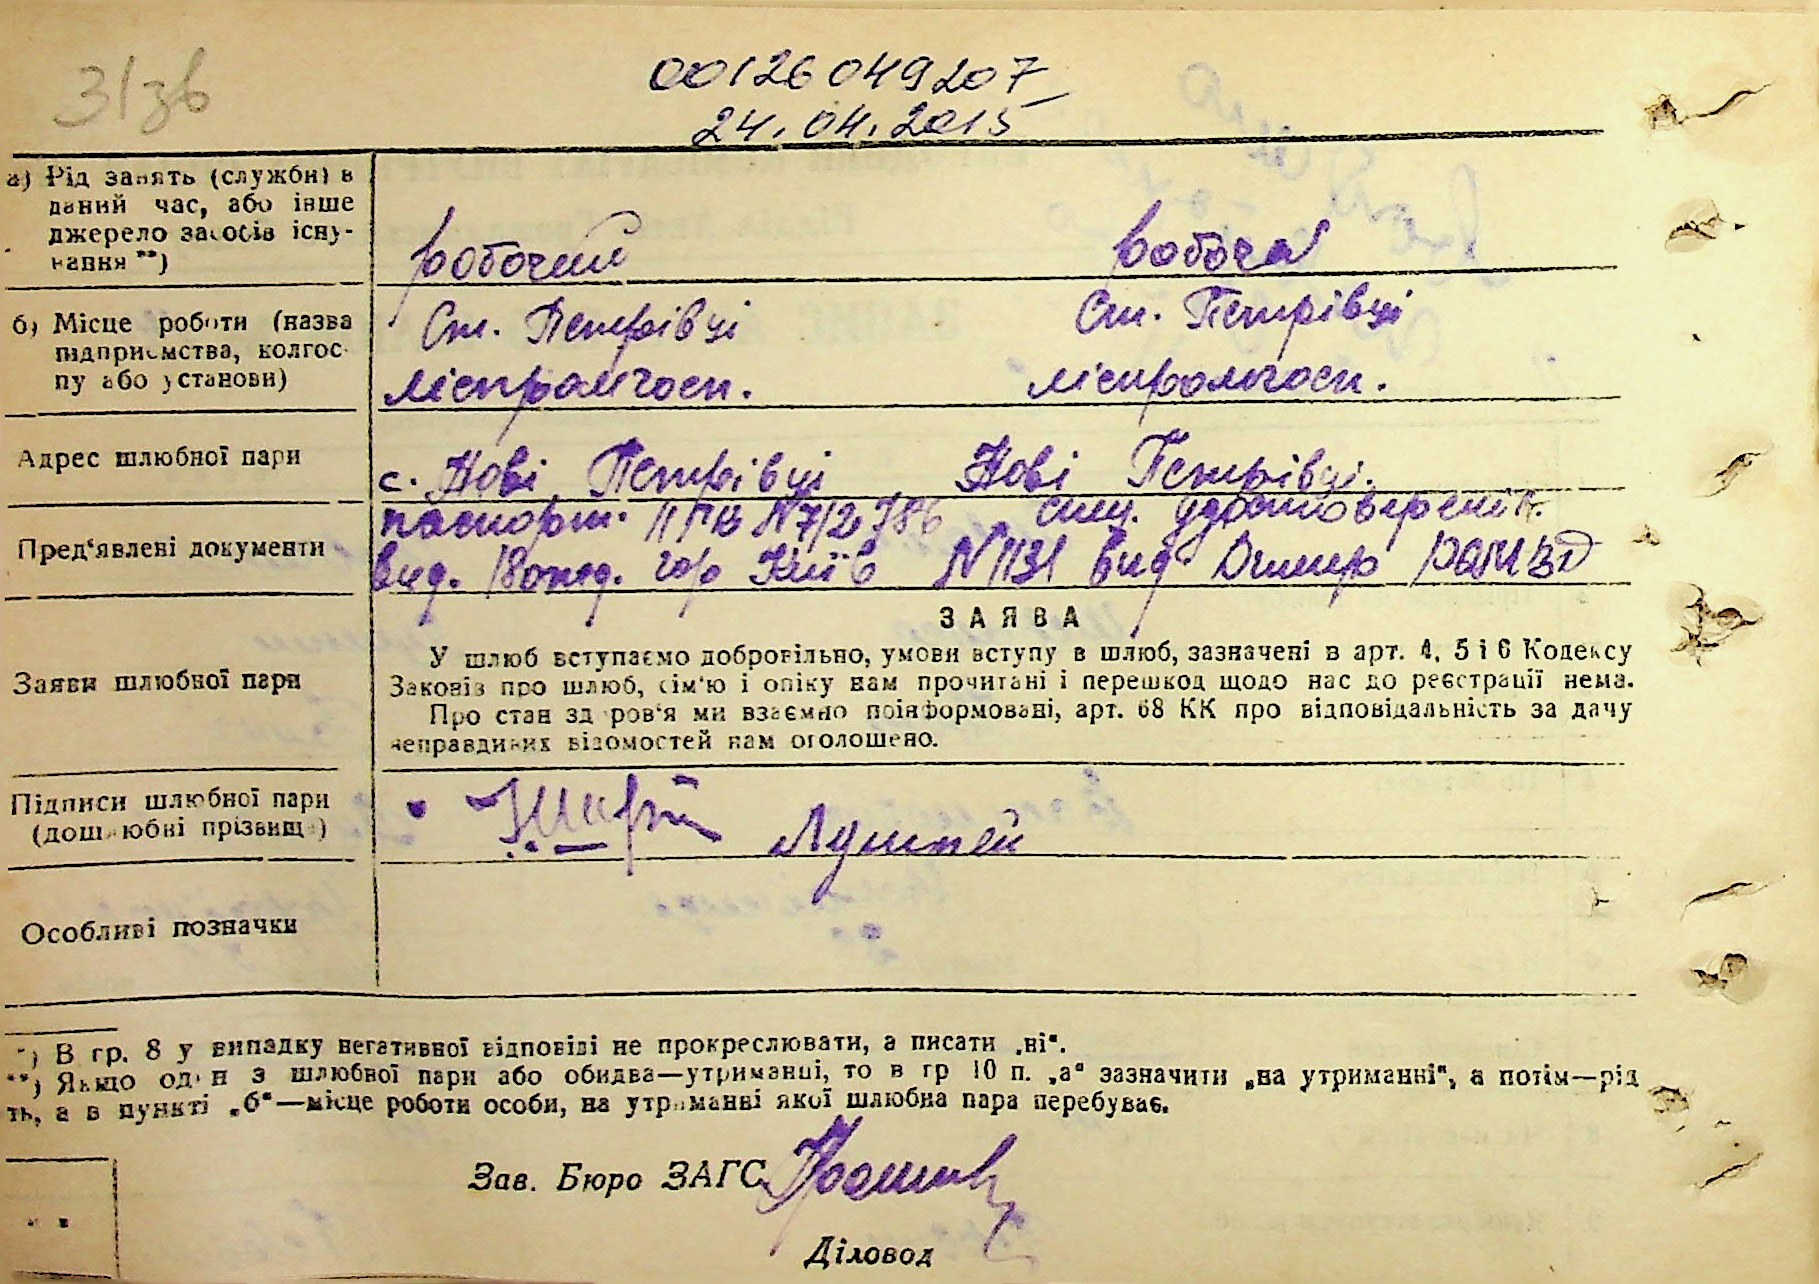 31зв
00126049207
24.04.2015
а) Рід занять (служби) в
даний час, або інше
джерело засобів існу-
вання **)
робочий робоча
б) Місце роботи (назва
підприємства, колгос-
пу або установи)
Ст. Петрівці Ст. Петрівці
ліспромгосп. ліспромгосп.
Адрес шлюбної пари
с. Нові Петрівці Нові Петрівці.
Пред'явлені документи
паспорт. № 712786
вид. гор Київ № 1131 вид Димер
ЗАЯВА
Заяви шлюбної пари
У шлюб вступаємо добровільно, умови вступу в шлюб, зазначені в арт. 4, 5 і 6 Кодексу
Законів про шлюб, сім'ю і опіку нам прочитані і перешкод щодо нас до реєстрації нема.
Про стан здоров'я ми взаємно поінформовані, арт. 68 КК про відповідальність за дачу
неправдивих відомостей нам оголошено.
Підписи шлюбної пари
(дошлюбні прізвища)
Особливі позначки
*) В гр. 8 у випадку негативної відповіді не прокреслювати, а писати „ні“.
**) Якщо один з шлюбної пари або обидва—утриманці, то в гр 10 п. „а“ зазначити „на утриманні“, а потім—рід
ть, а в пункті „б“—місце роботи особи, на утриманні якої шлюбна пара перебуває.
Зав. Бюро ЗАГС
Діловод